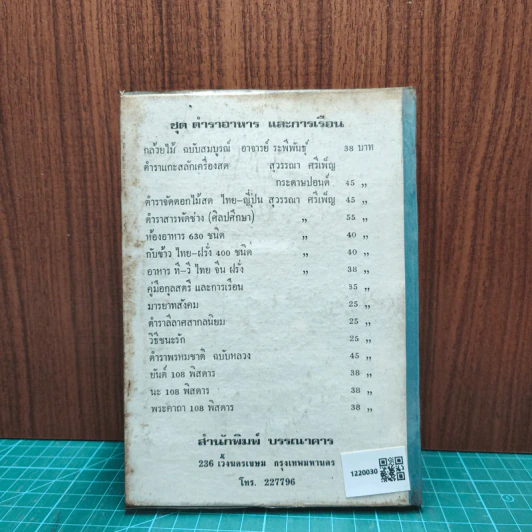 ชุด ตำราอาหาร และการเรือน
กล้วยไม้ ฉบับสมบูรณ์ อาจารย์ ระพีพันธุ์ 38 บาท
ตำราแกะสลักเครื่องสด สุวรรณา ศรีเพ็ญ
กระดาษปอนด์ 45 ,,
ตำราจัดดอกไม้สด ไทย-ญี่ปุ่น สุวรรณา ศรีเพ็ญ 45 ,,
ตำราสารพัดช่าง (ศิลปศึกษา) ,, 55 ,,
ห้องอาหาร 630 ชนิด ,, 40 ,,
กับข้าว ไทย-ฝรั่ง 400 ชนิด ,, 40 ,,
อาหาร ที-วี ไทย จีน ฝรั่ง ,, 38 ,,
คู่มือกุลสตรี และการเรือน 35 ,,
มารยาทสังคม 25 ,,
ตำราลีลาศสากลนิยม 25 ,,
วิธีชนะรัก 25 ,,
ตำราพรหมชาติ ฉบับหลวง 45 ,,
ยันต์ 108 พิสดาร 38 ,,
นะ 108 พิสดาร 38 ,,
พระคาถา 108 พิสดาร 38 ,,
สำนักพิมพ์ บรรณาคาร
236 เวิ้งนครเขษม กรุงเทพมหานคร
โทร. 227796
1220030